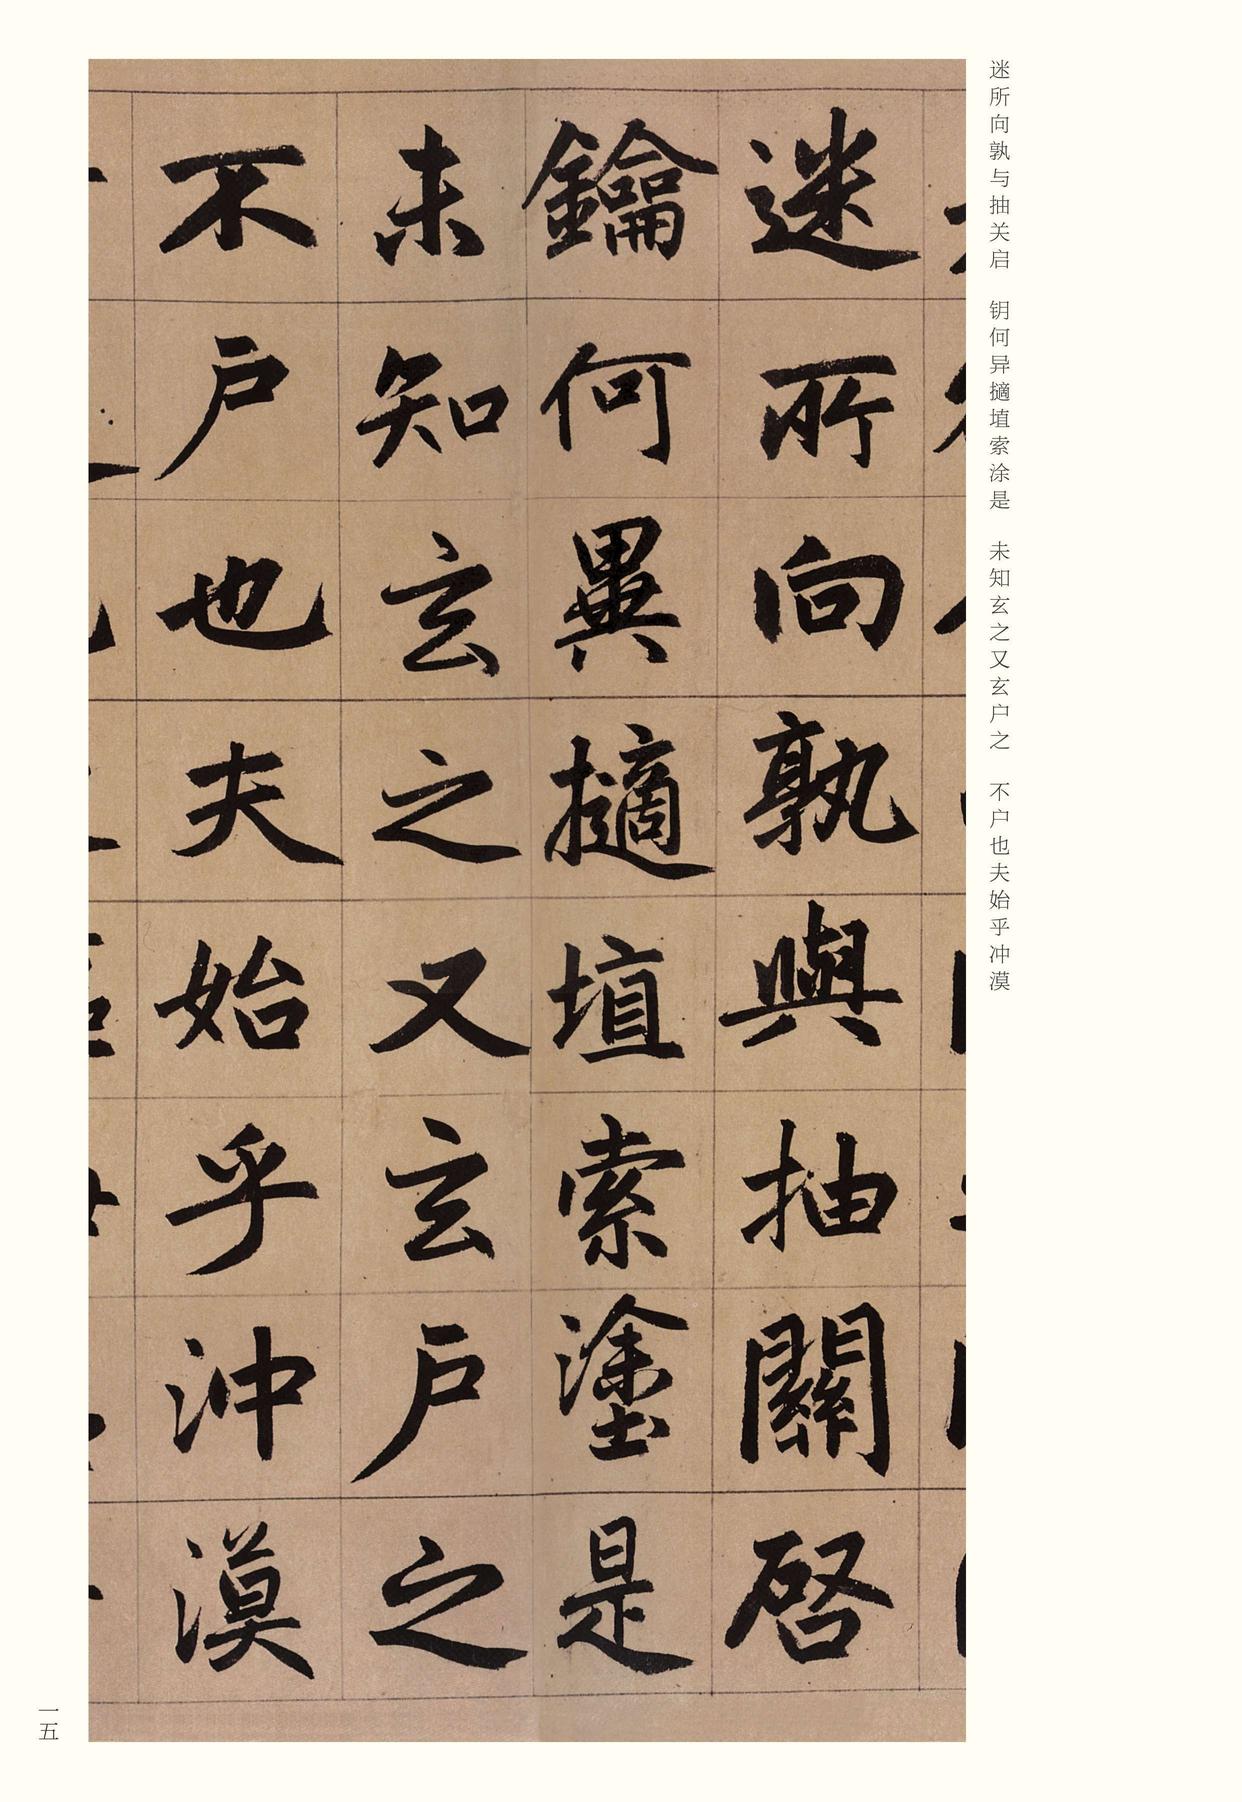 迷所向孰与抽关启　钥何异擿埴索涂是　未知玄之又玄户之　不户也夫始乎冲漠
迷所向孰與抽關啓
鑰何異擿埴索塗是
未知玄之又玄户之
不户也夫始乎沖漠
一五